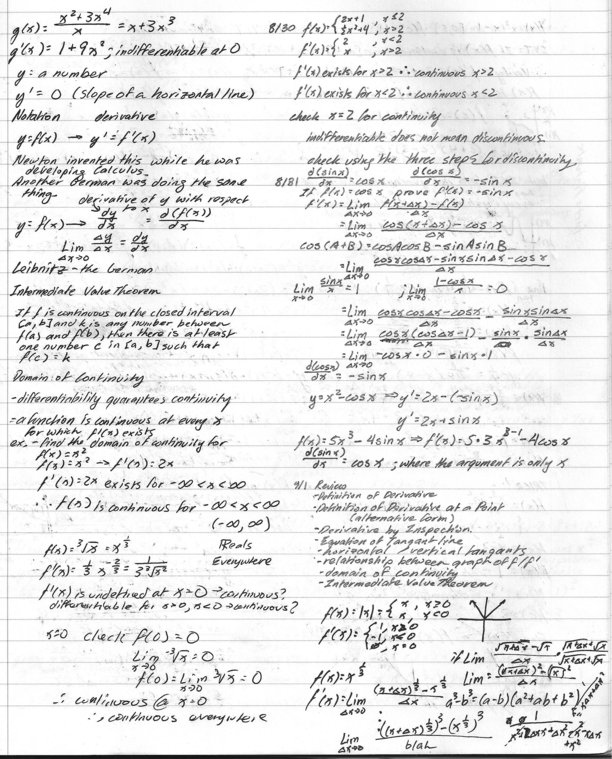 g(x) = (x² + 3x⁴)/x = x + 3x³
g'(x) = 1 + 9x² ; indifferentiable at 0
y = a number
y' = 0 (slope of a horizontal line)
Notation derivative
y = f(x) → y' = f'(x)
Newton invented this while he was
developing Calculus.
Another German was doing the same
thing
derivative of y with respect
to x
y = f(x) → dy/dx = d(f(x))/dx
Lim Δx→0 Δy/Δx = dy/dx
Leibnitz - the German
Intermediate Value Theorem
If f is continuous on the closed interval
[a, b] and k is any number between
f(a) and f(b), then there is at least
one number c in [a, b] such that
f(c) = k
Domain of Continuity
- differentiability guarantees continuity
= a function is continuous at every x
for which f'(x) exists
ex. - find the domain of continuity for
f(x) = x²
f(x) = x² → f'(x) = 2x
f'(x) = 2x exists for -∞ < x < ∞
∴ f(x) is continuous for -∞ < x < ∞
(-∞, ∞)
Reals
Everywhere
f(x) = ³√x = x^(1/3)
f'(x) = 1/3 x^(-2/3) = 1/(3 ³√x²)
f'(x) is undefined at x = 0 → continuous?
differentiable for x>0, x<0 → continuous?
x=0 check f(0) = 0
Lim x→0 ³√x = 0
f(0) = Lim x→0 ³√x = 0
∴ continuous @ x=0
∴ continuous everywhere
8/30 f(x) = { 2x+1, x≤2
x²+4, x>2
f'(x) = { 2, x<2
x, x>2
f'(x) exists for x>2 ∴ continuous x>2
f'(x) exists for x<2 ∴ continuous x<2
check x=2 for continuity
indifferentiable does not mean discontinuous
check using the three steps for discontinuity
8/31 d(sin x)/dx = cos x d(cos x)/dx = -sin x
If f(x) = cos x prove f'(x) = -sin x
f'(x) = Lim Δx→0 (f(x+Δx) - f(x))/Δx
= Lim Δx→0 (cos(x+Δx) - cos x)/Δx
cos(A+B) = cosAcosB - sinAsinB
= Lim Δx→0 (cosxcosΔx - sinxsinΔx - cosx)/Δx
Lim x→0 sinx/x = 1 ; Lim x→0 (1-cosx)/x = 0
= Lim Δx→0 (cosxcosΔx - cosx)/Δx - sinxsinΔx/Δx
= Lim Δx→0 cosx(cosΔx-1)/Δx - sinx · sinΔx/Δx
= Lim Δx→0 -cosx·0 - sinx·1
d(cosx)/dx = -sinx
y = x² - cosx ⇒ y' = 2x - (-sinx)
y' = 2x + sinx
f(x) = 5x³ - 4sinx ⇒ f'(x) = 5·3x³⁻¹ - 4cosx
d(sinx)/dx = cosx ; where the argument is only x
9/1 Review
- Definition of Derivative
- Definition of Derivative at a Point
(alternative form)
- Derivative by Inspection
- Equation of Tangent line
- horizontal / vertical tangents
- relationship between graph of f/f'
- domain of continuity
- Intermediate Value Theorem
f(x) = |x| = { x, x≥0
-x, x<0
f'(x) = { 1, x>0
-1, x<0
, x=0
if Lim (√(x+Δx) - √x)/Δx · (√(x+Δx)+√x)/(√(x+Δx)+√x)
f(x) = x^(1/3)
Lim = ((√(x+Δx))² - (√x)²)/Δx
f'(x) = Lim Δx→0 ((x+Δx)^(1/3) - x^(1/3))/Δx
a³-b³ = (a-b)(a²+ab+b²)
Lim Δx→0 (((x+Δx)^(1/3))³ - (x^(1/3))³)/blah